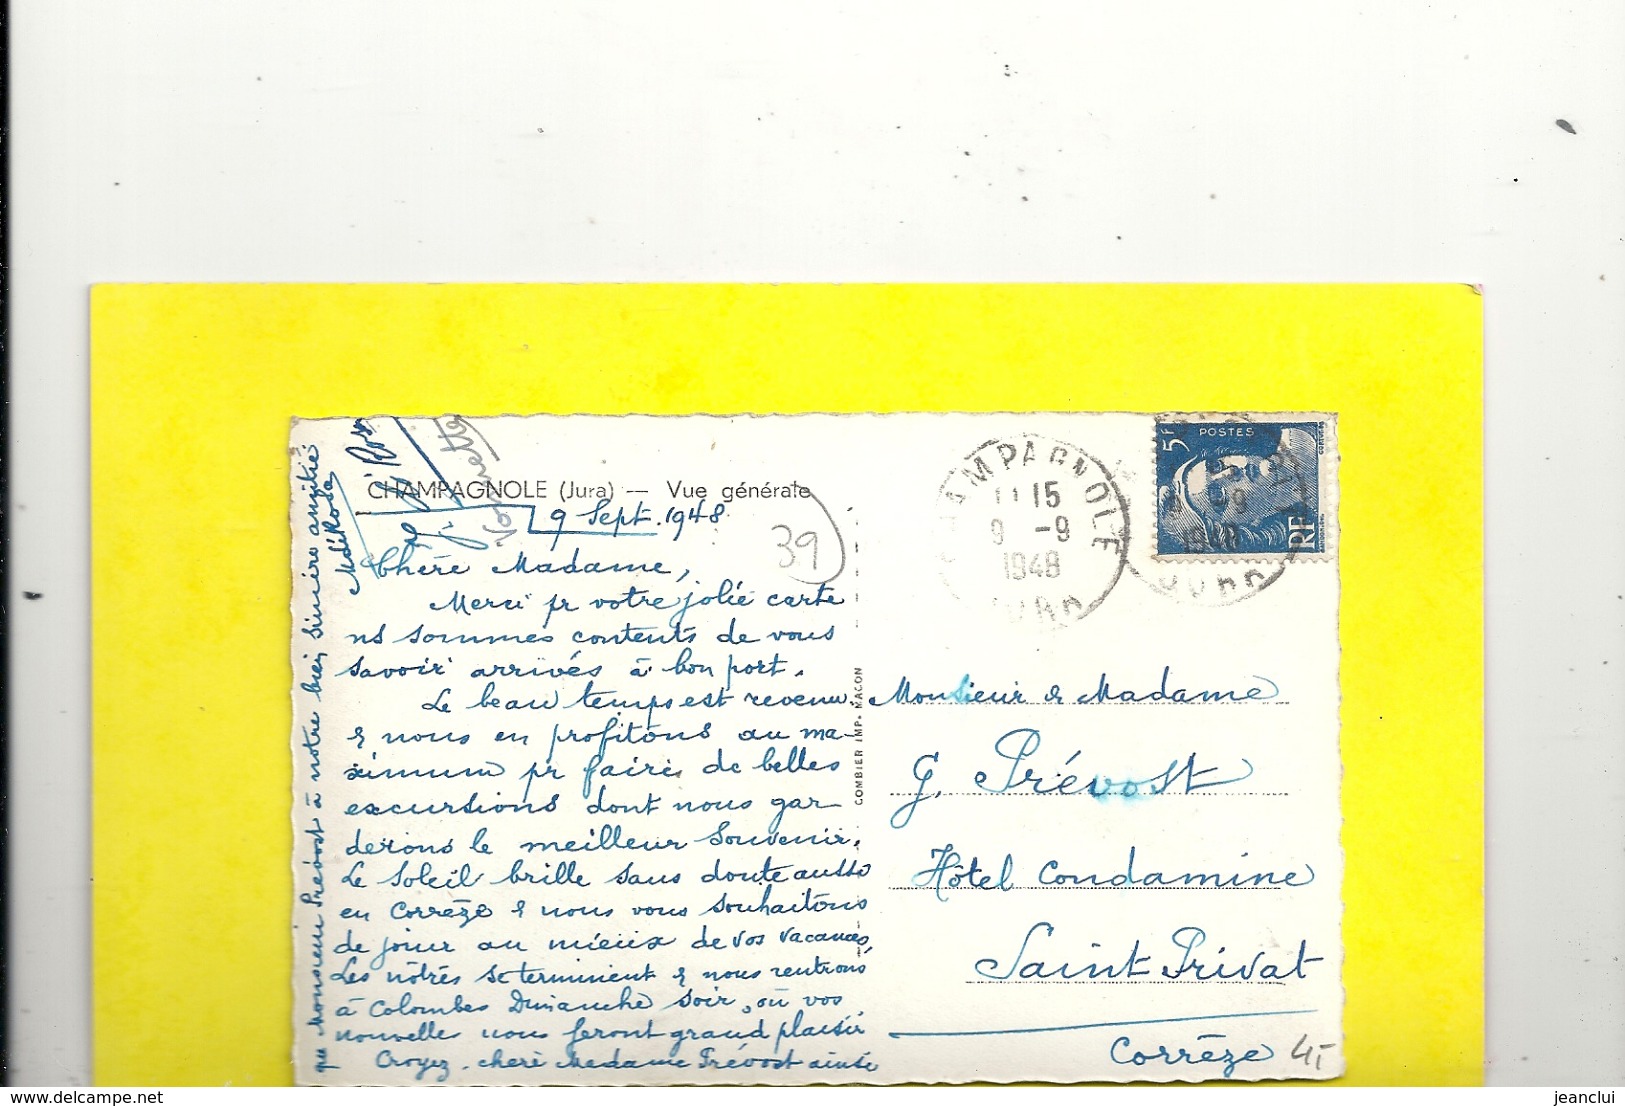 CHAMPAGNOLE (Jura) — Vue générale
9 Sept. 1948
39
Chère Madame,
Merci pr votre jolie carte
ns sommes contents de vous
savoir arrivés à bon port.
Le beau temps est revenu
& nous en profitons au ma-
ximum pr faire de belles
excursions dont nous gar-
derons le meilleur souvenir.
Le soleil brille sans doute aussi
en Corrèze & nous vous souhaitons
de jouir au mieux de vos vacances.
Les nôtres se terminent & nous rentrons
à Colombes Dimanche soir, où vos
nouvelles nous feront grand plaisir
Croyez, chère Madame Prévost ainsi
que Monsieur Prévost à notre bien sincère amitié
COMBIER IMP. MACON
CHAMPAGNOLE
11 15
9 -9
1948
JURA
5F
POSTES
RF
1948
JURA
Monsieur & Madame
G. Prévost
Hôtel Condamine
Saint Privat
Corrèze
jeanclui